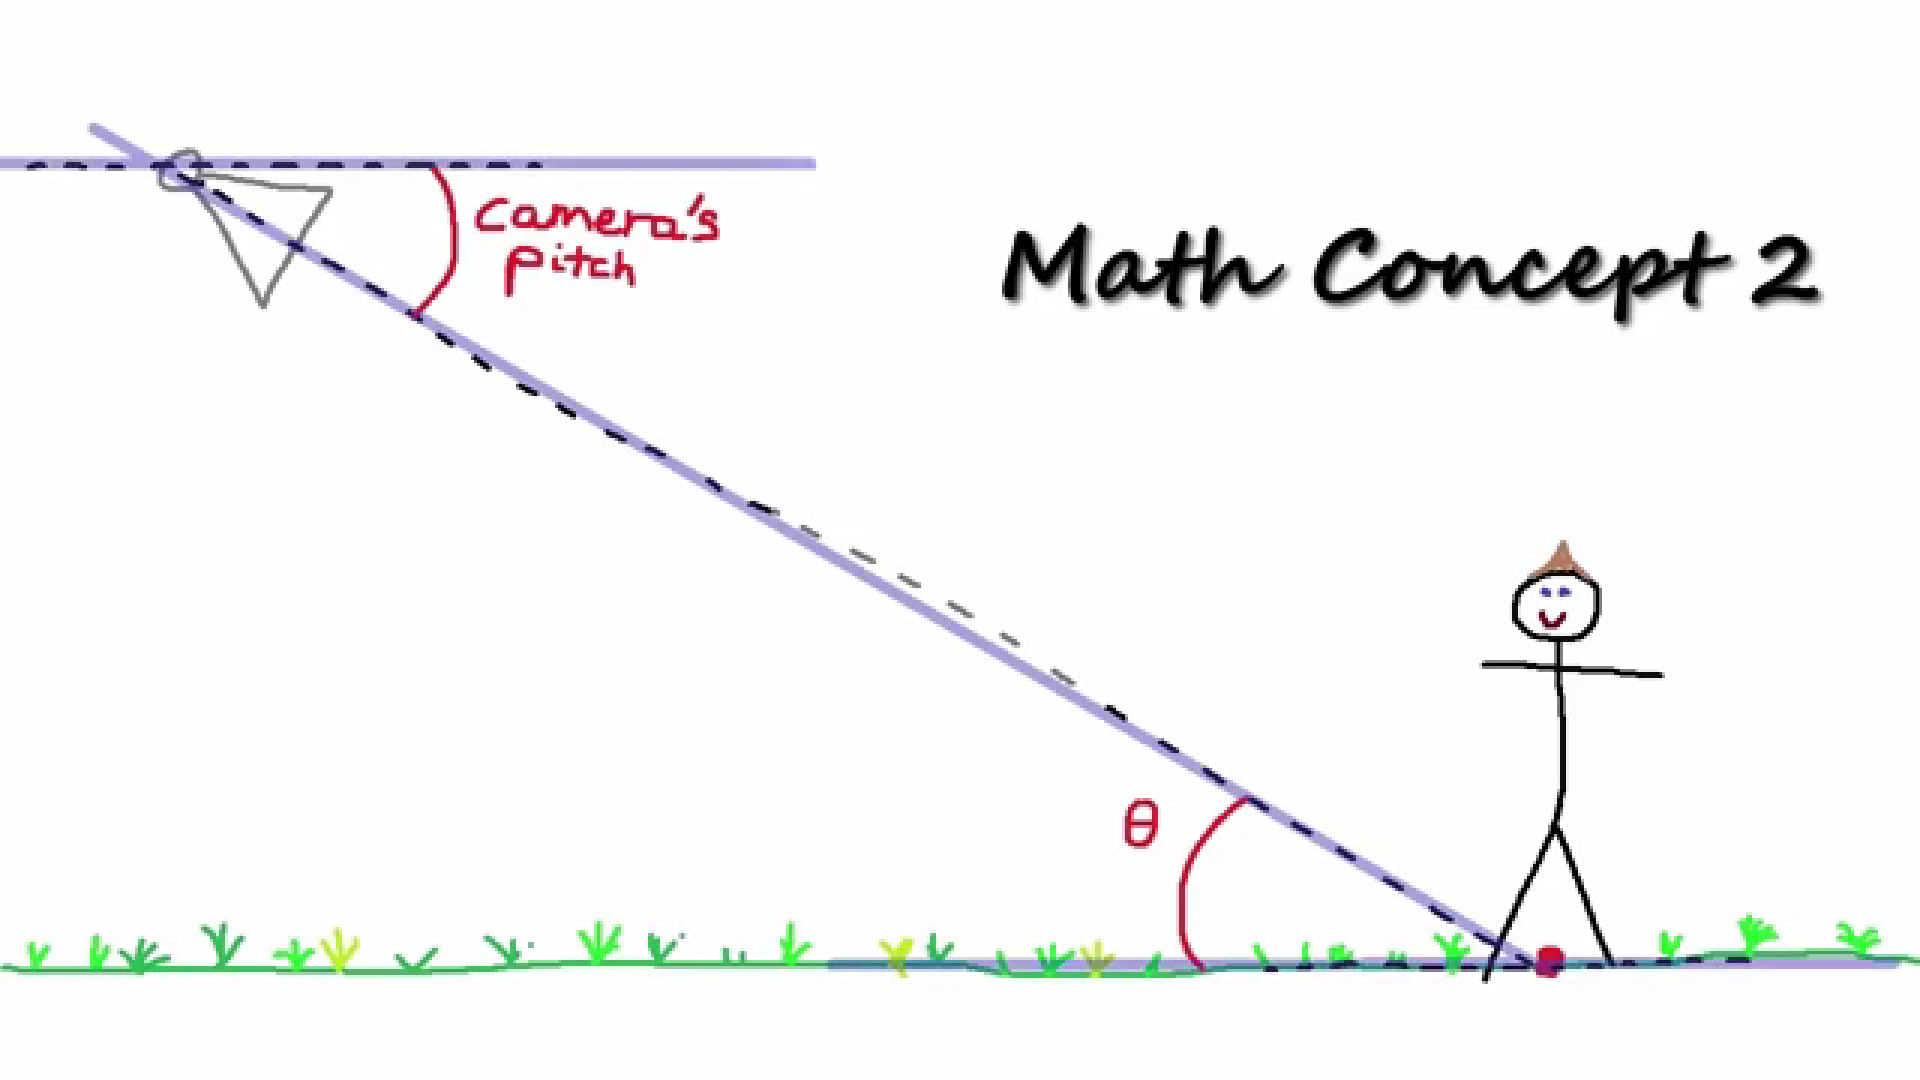 Camera's
pitch
Math Concept 2
θ